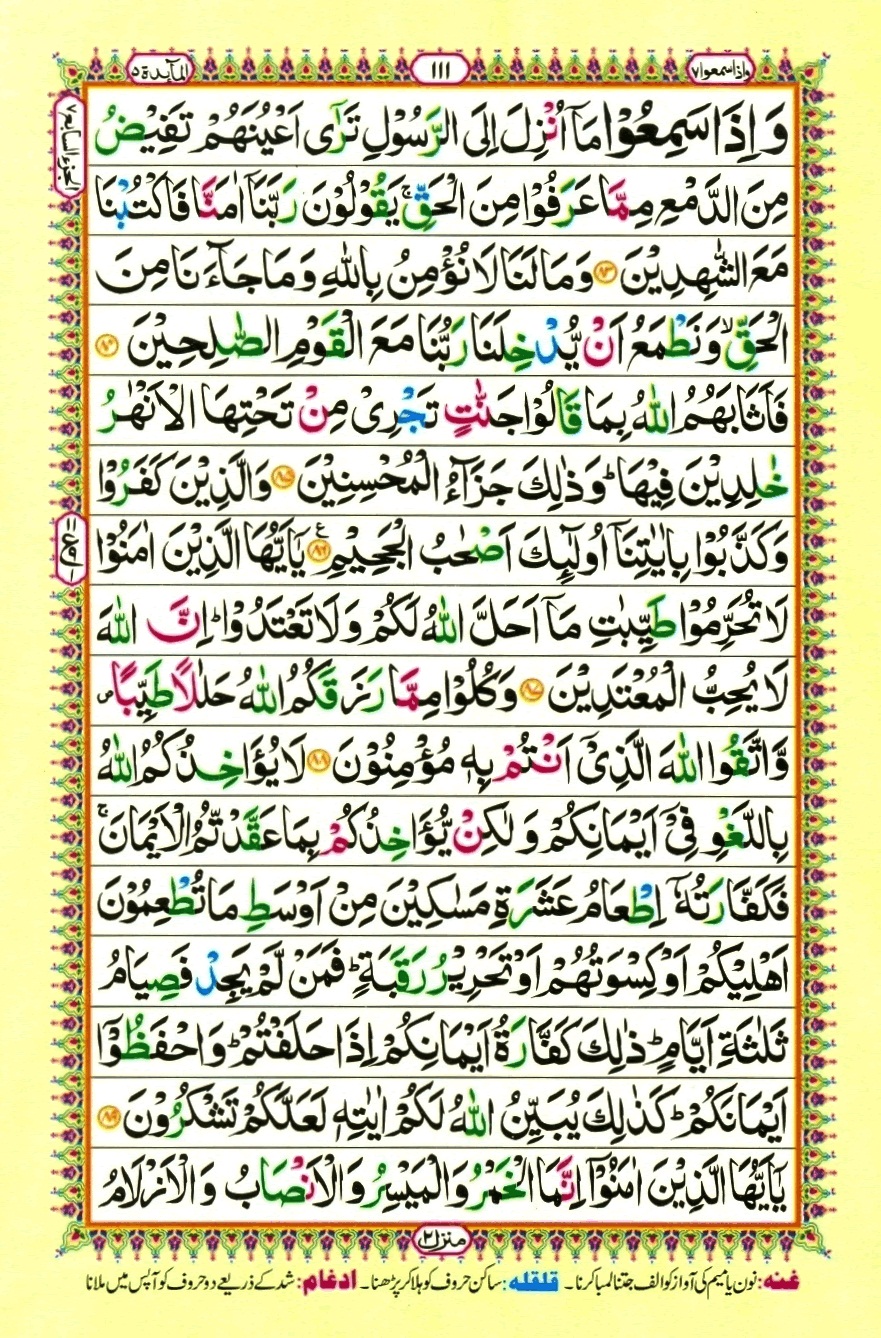 وَاِذَا سَمِعُوْا ٧
١١١
اَلْمَآئِدَة ٥
الجزء السابع ٧
وَاِذَا سَمِعُوْا مَآ اُنْزِلَ اِلَى الرَّسُوْلِ تَرٰٓى اَعْيُنَهُمْ تَفِيْضُ
مِنَ الدَّمْعِ مِمَّا عَرَفُوْا مِنَ الْحَقِّ ۚ يَقُوْلُوْنَ رَبَّنَآ اٰمَنَّا فَاكْتُبْنَا
مَعَ الشّٰهِدِيْنَ ﴿٨٣﴾ وَمَا لَنَا لَا نُؤْمِنُ بِاللّٰهِ وَمَا جَآءَنَا مِنَ
الْحَقِّ ۙ وَنَطْمَعُ اَنْ يُّدْخِلَنَا رَبُّنَا مَعَ الْقَوْمِ الصّٰلِحِيْنَ ﴿٨٤﴾
فَاَثَابَهُمُ اللّٰهُ بِمَا قَالُوْا جَنّٰتٍ تَجْرِىْ مِنْ تَحْتِهَا الْاَنْهٰرُ
خٰلِدِيْنَ فِيْهَا ؕ وَذٰلِكَ جَزَآءُ الْمُحْسِنِيْنَ ﴿٨٥﴾ وَالَّذِيْنَ كَفَرُوْا
وَكَذَّبُوْا بِاٰيٰتِنَآ اُولٰٓئِكَ اَصْحٰبُ الْجَحِيْمِ ﴿٨٦﴾ ع يٰٓاَيُّهَا الَّذِيْنَ اٰمَنُوْا
لَا تُحَرِّمُوْا طَيِّبٰتِ مَآ اَحَلَّ اللّٰهُ لَكُمْ وَلَا تَعْتَدُوْا ؕ اِنَّ اللّٰهَ
لَا يُحِبُّ الْمُعْتَدِيْنَ ﴿٨٧﴾ وَكُلُوْا مِمَّا رَزَقَكُمُ اللّٰهُ حَلٰلًا طَيِّبًا ۖ
وَّاتَّقُوا اللّٰهَ الَّذِىْٓ اَنْتُمْ بِهٖ مُؤْمِنُوْنَ ﴿٨٨﴾ لَا يُؤَاخِذُكُمُ اللّٰهُ
بِاللَّغْوِ فِىْٓ اَيْمَانِكُمْ وَلٰكِنْ يُّؤَاخِذُكُمْ بِمَا عَقَّدْتُّمُ الْاَيْمَانَ ۚ
فَكَفَّارَتُهٗٓ اِطْعَامُ عَشَرَةِ مَسٰكِيْنَ مِنْ اَوْسَطِ مَا تُطْعِمُوْنَ
اَهْلِيْكُمْ اَوْ كِسْوَتُهُمْ اَوْ تَحْرِيْرُ رَقَبَةٍ ؕ فَمَنْ لَّمْ يَجِدْ فَصِيَامُ
ثَلٰثَةِ اَيَّامٍ ؕ ذٰلِكَ كَفَّارَةُ اَيْمَانِكُمْ اِذَا حَلَفْتُمْ ؕ وَاحْفَظُوْٓا
اَيْمَانَكُمْ ؕ كَذٰلِكَ يُبَيِّنُ اللّٰهُ لَكُمْ اٰيٰتِهٖ لَعَلَّكُمْ تَشْكُرُوْنَ ﴿٨٩﴾
يٰٓاَيُّهَا الَّذِيْنَ اٰمَنُوْٓا اِنَّمَا الْخَمْرُ وَالْمَيْسِرُ وَالْاَنْصَابُ وَالْاَزْلَامُ
منزل ٢
غنه: نون یا میم کی آواز کو الف جتنا لمبا کرنا۔ قلقله: ساکن حروف کو ہلا کر پڑھنا۔ ادغام: شد کے ذریعے دو حروف کو آپس میں ملانا